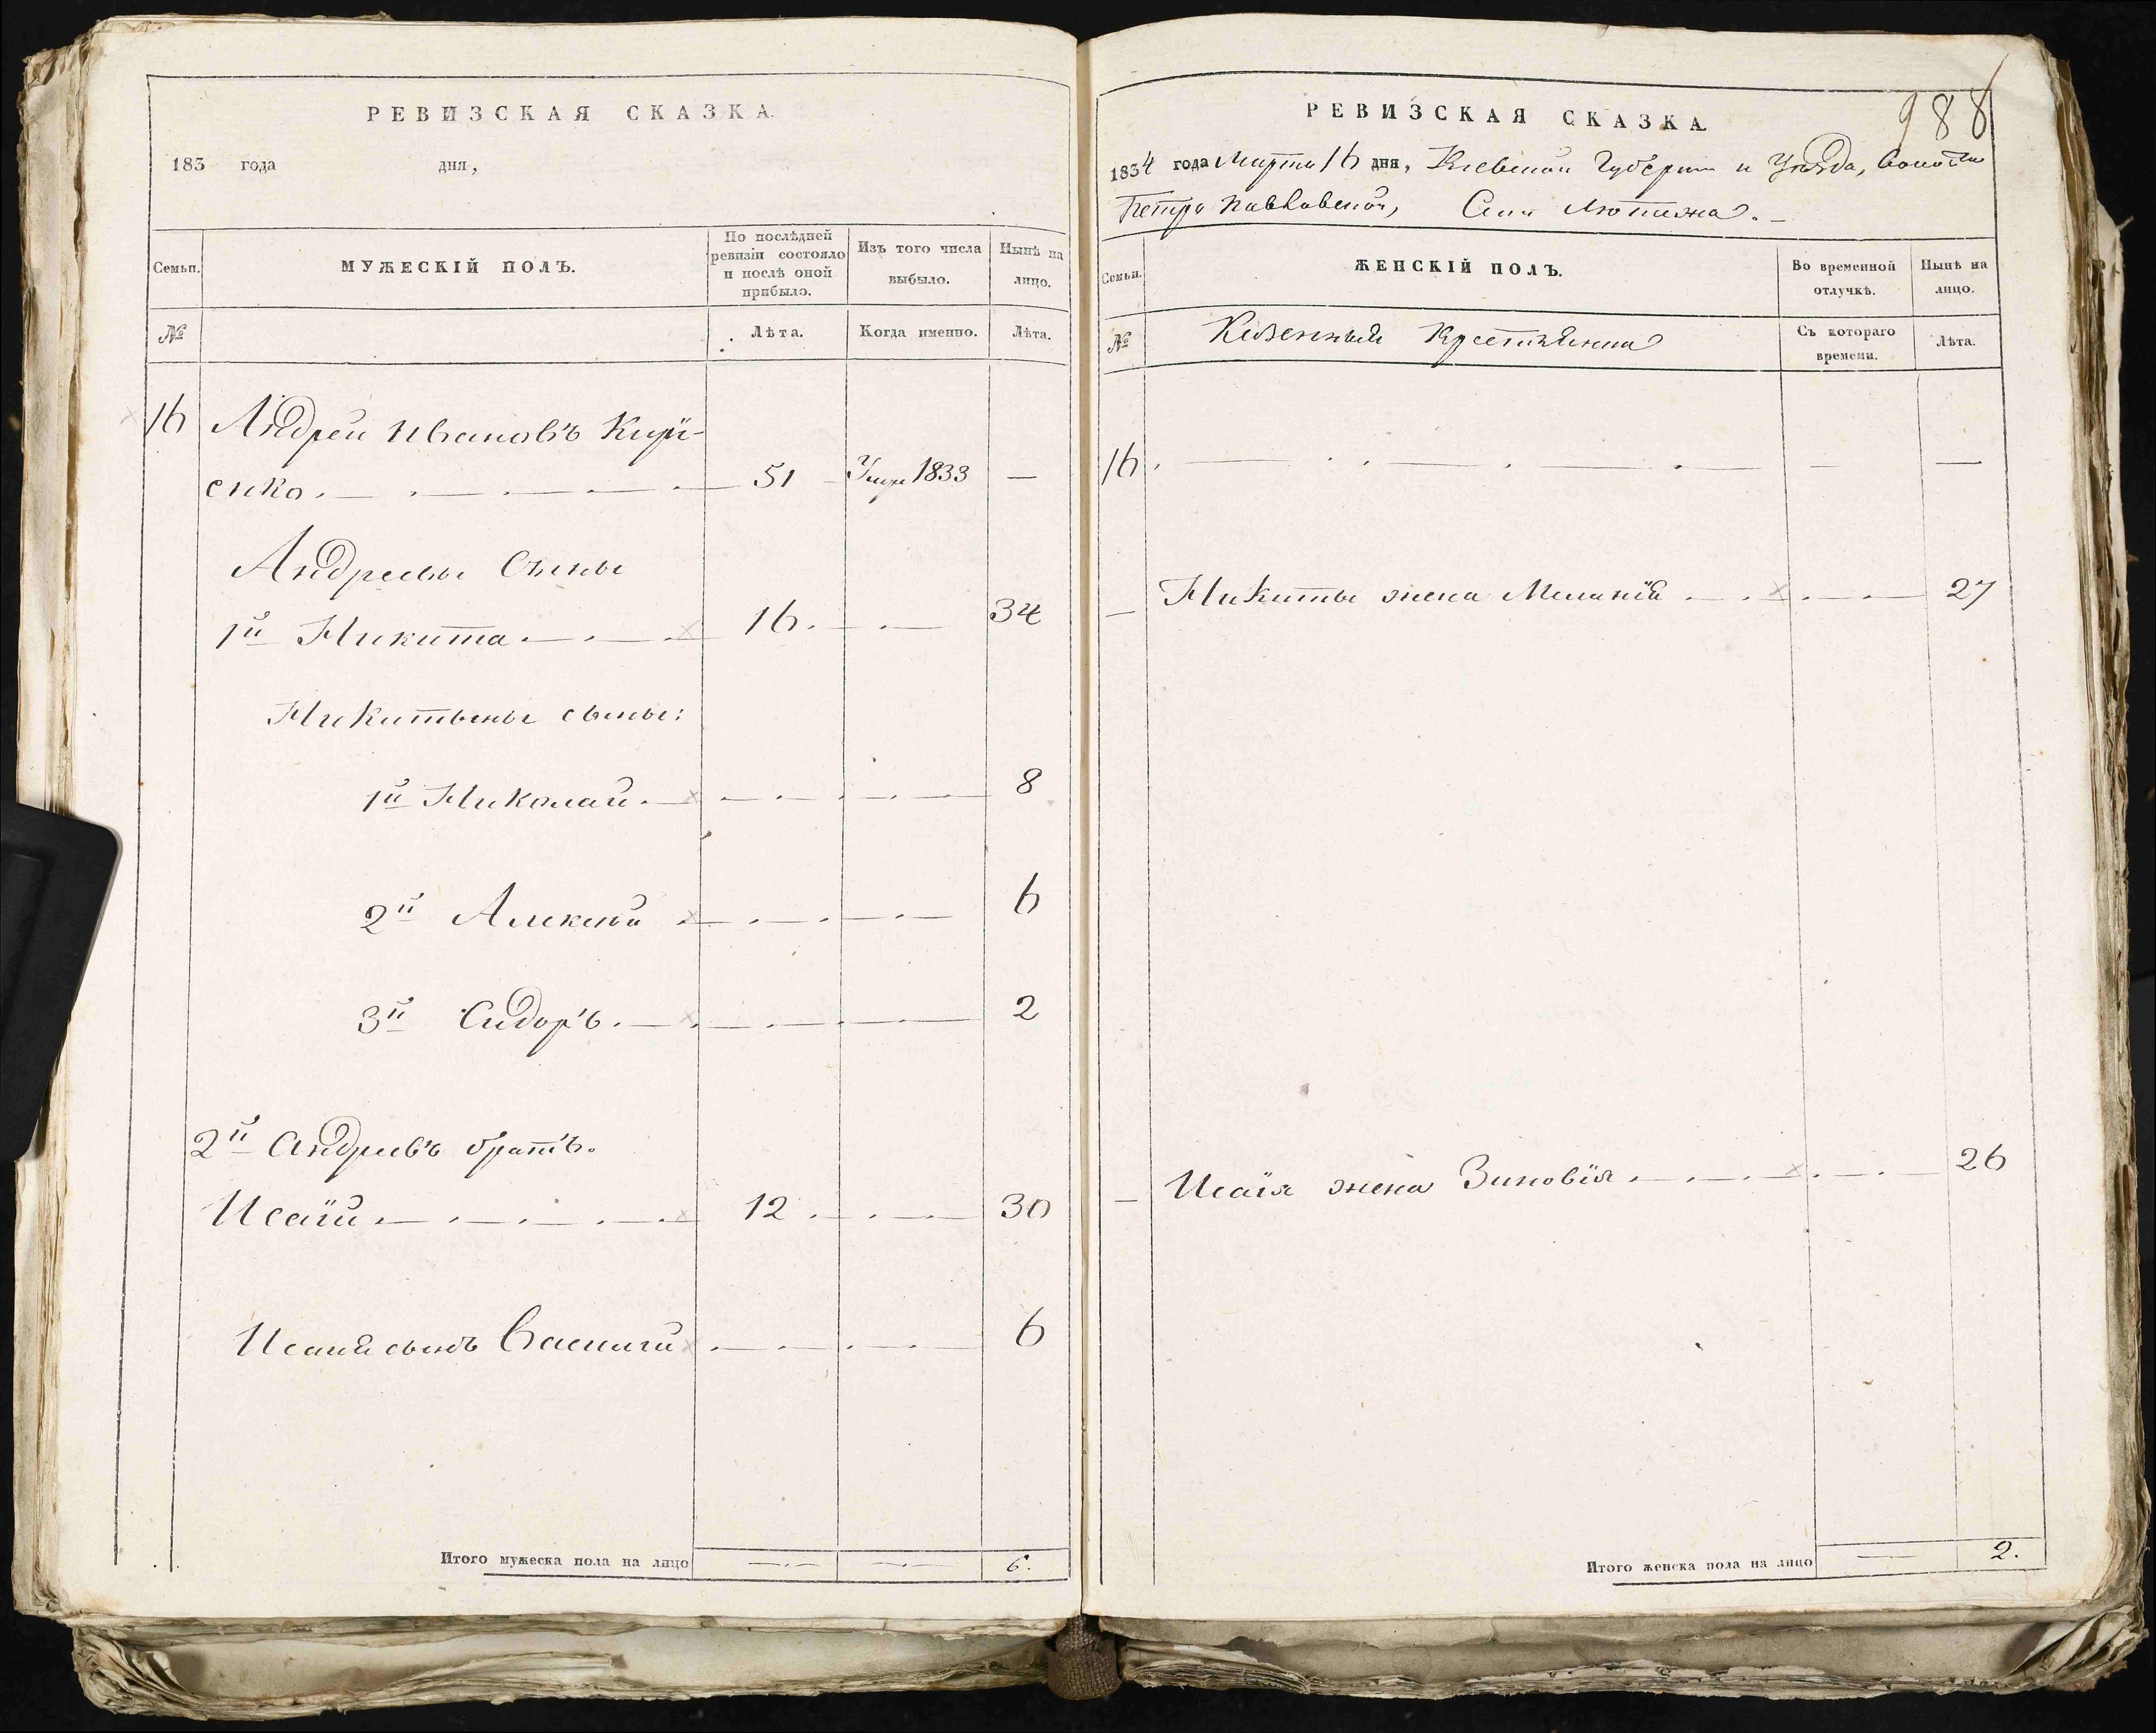 РЕВИЗСКАЯ СКАЗКА.
183 года дня,
Семьи.
МУЖЕСКІЙ ПОЛЪ.
По послѣдней
ревизіи состояло
и послѣ оной
прибыло.
Изъ того числа
выбыло.
Нынѣ на
лицо.
№
Лѣта.
Когда именно.
Лѣта.
16 Андрей Ивановъ Кири-
енко 51 Умре 1833 —
Андреевы Сыны
1й Никита 16 34
Никитины сыны:
1й Николай 8
2й Алексѣй 6
3й Сидоръ 2
2й Андреевъ братъ.
Исаій 12 30
Исаія сынъ Василій 6
Итого мужеска пола на лицо 6.
988
РЕВИЗСКАЯ СКАЗКА.
1834 года Марта 16 дня, Кіевской Губерніи и Уѣзда, Волости
Петро Павловской, Села Лютежа.
Семьи.
ЖЕНСКІЙ ПОЛЪ.
Во временной
отлучкѣ.
Нынѣ на
лицо.
№
Казенный Крестьянинъ
Съ котораго
времени.
Лѣта.
16 — —
— Никиты жена Меланія 27
— Исаія жена Зиновія 26
Итого женска пола на лицо 2.